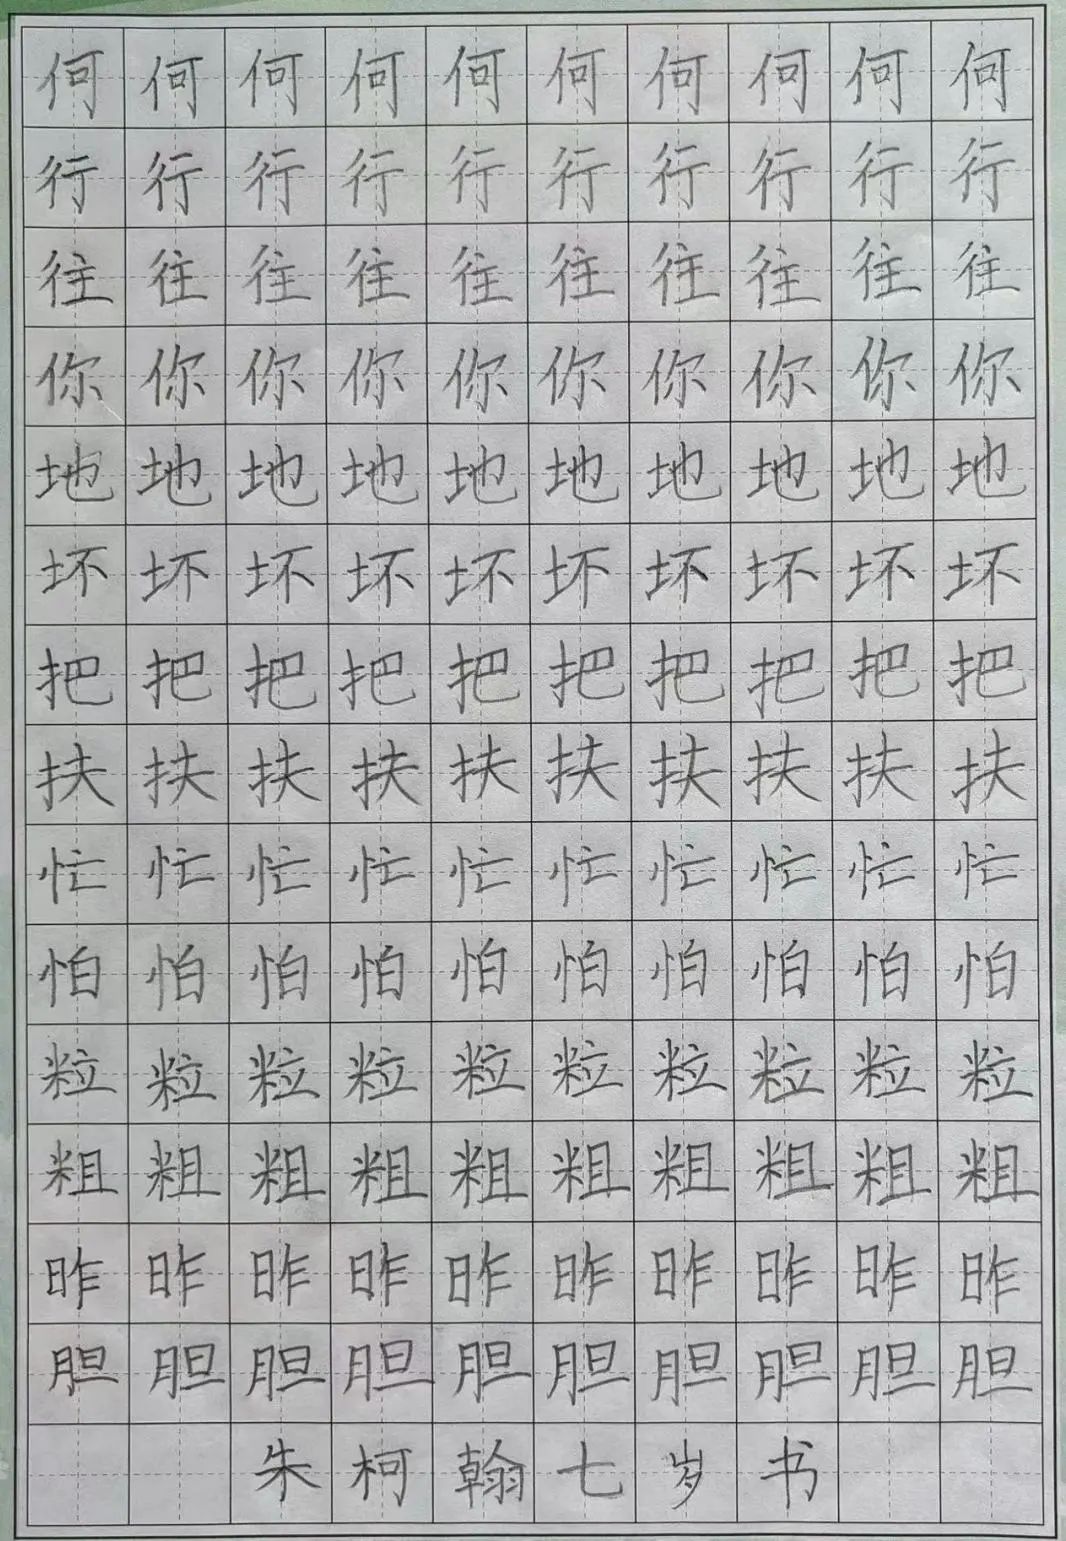 何何何何何何何何何何
行行行行行行行行行行
往往往往往往往往往往
你你你你你你你你你你
地地地地地地地地地地
坏坏坏坏坏坏坏坏坏坏
把把把把把把把把把把
扶扶扶扶扶扶扶扶扶扶
忙忙忙忙忙忙忙忙忙忙
怕怕怕怕怕怕怕怕怕怕
粒粒粒粒粒粒粒粒粒粒
粗粗粗粗粗粗粗粗粗粗
昨昨昨昨昨昨昨昨昨昨
胆胆胆胆胆胆胆胆胆胆
朱柯翰七岁书